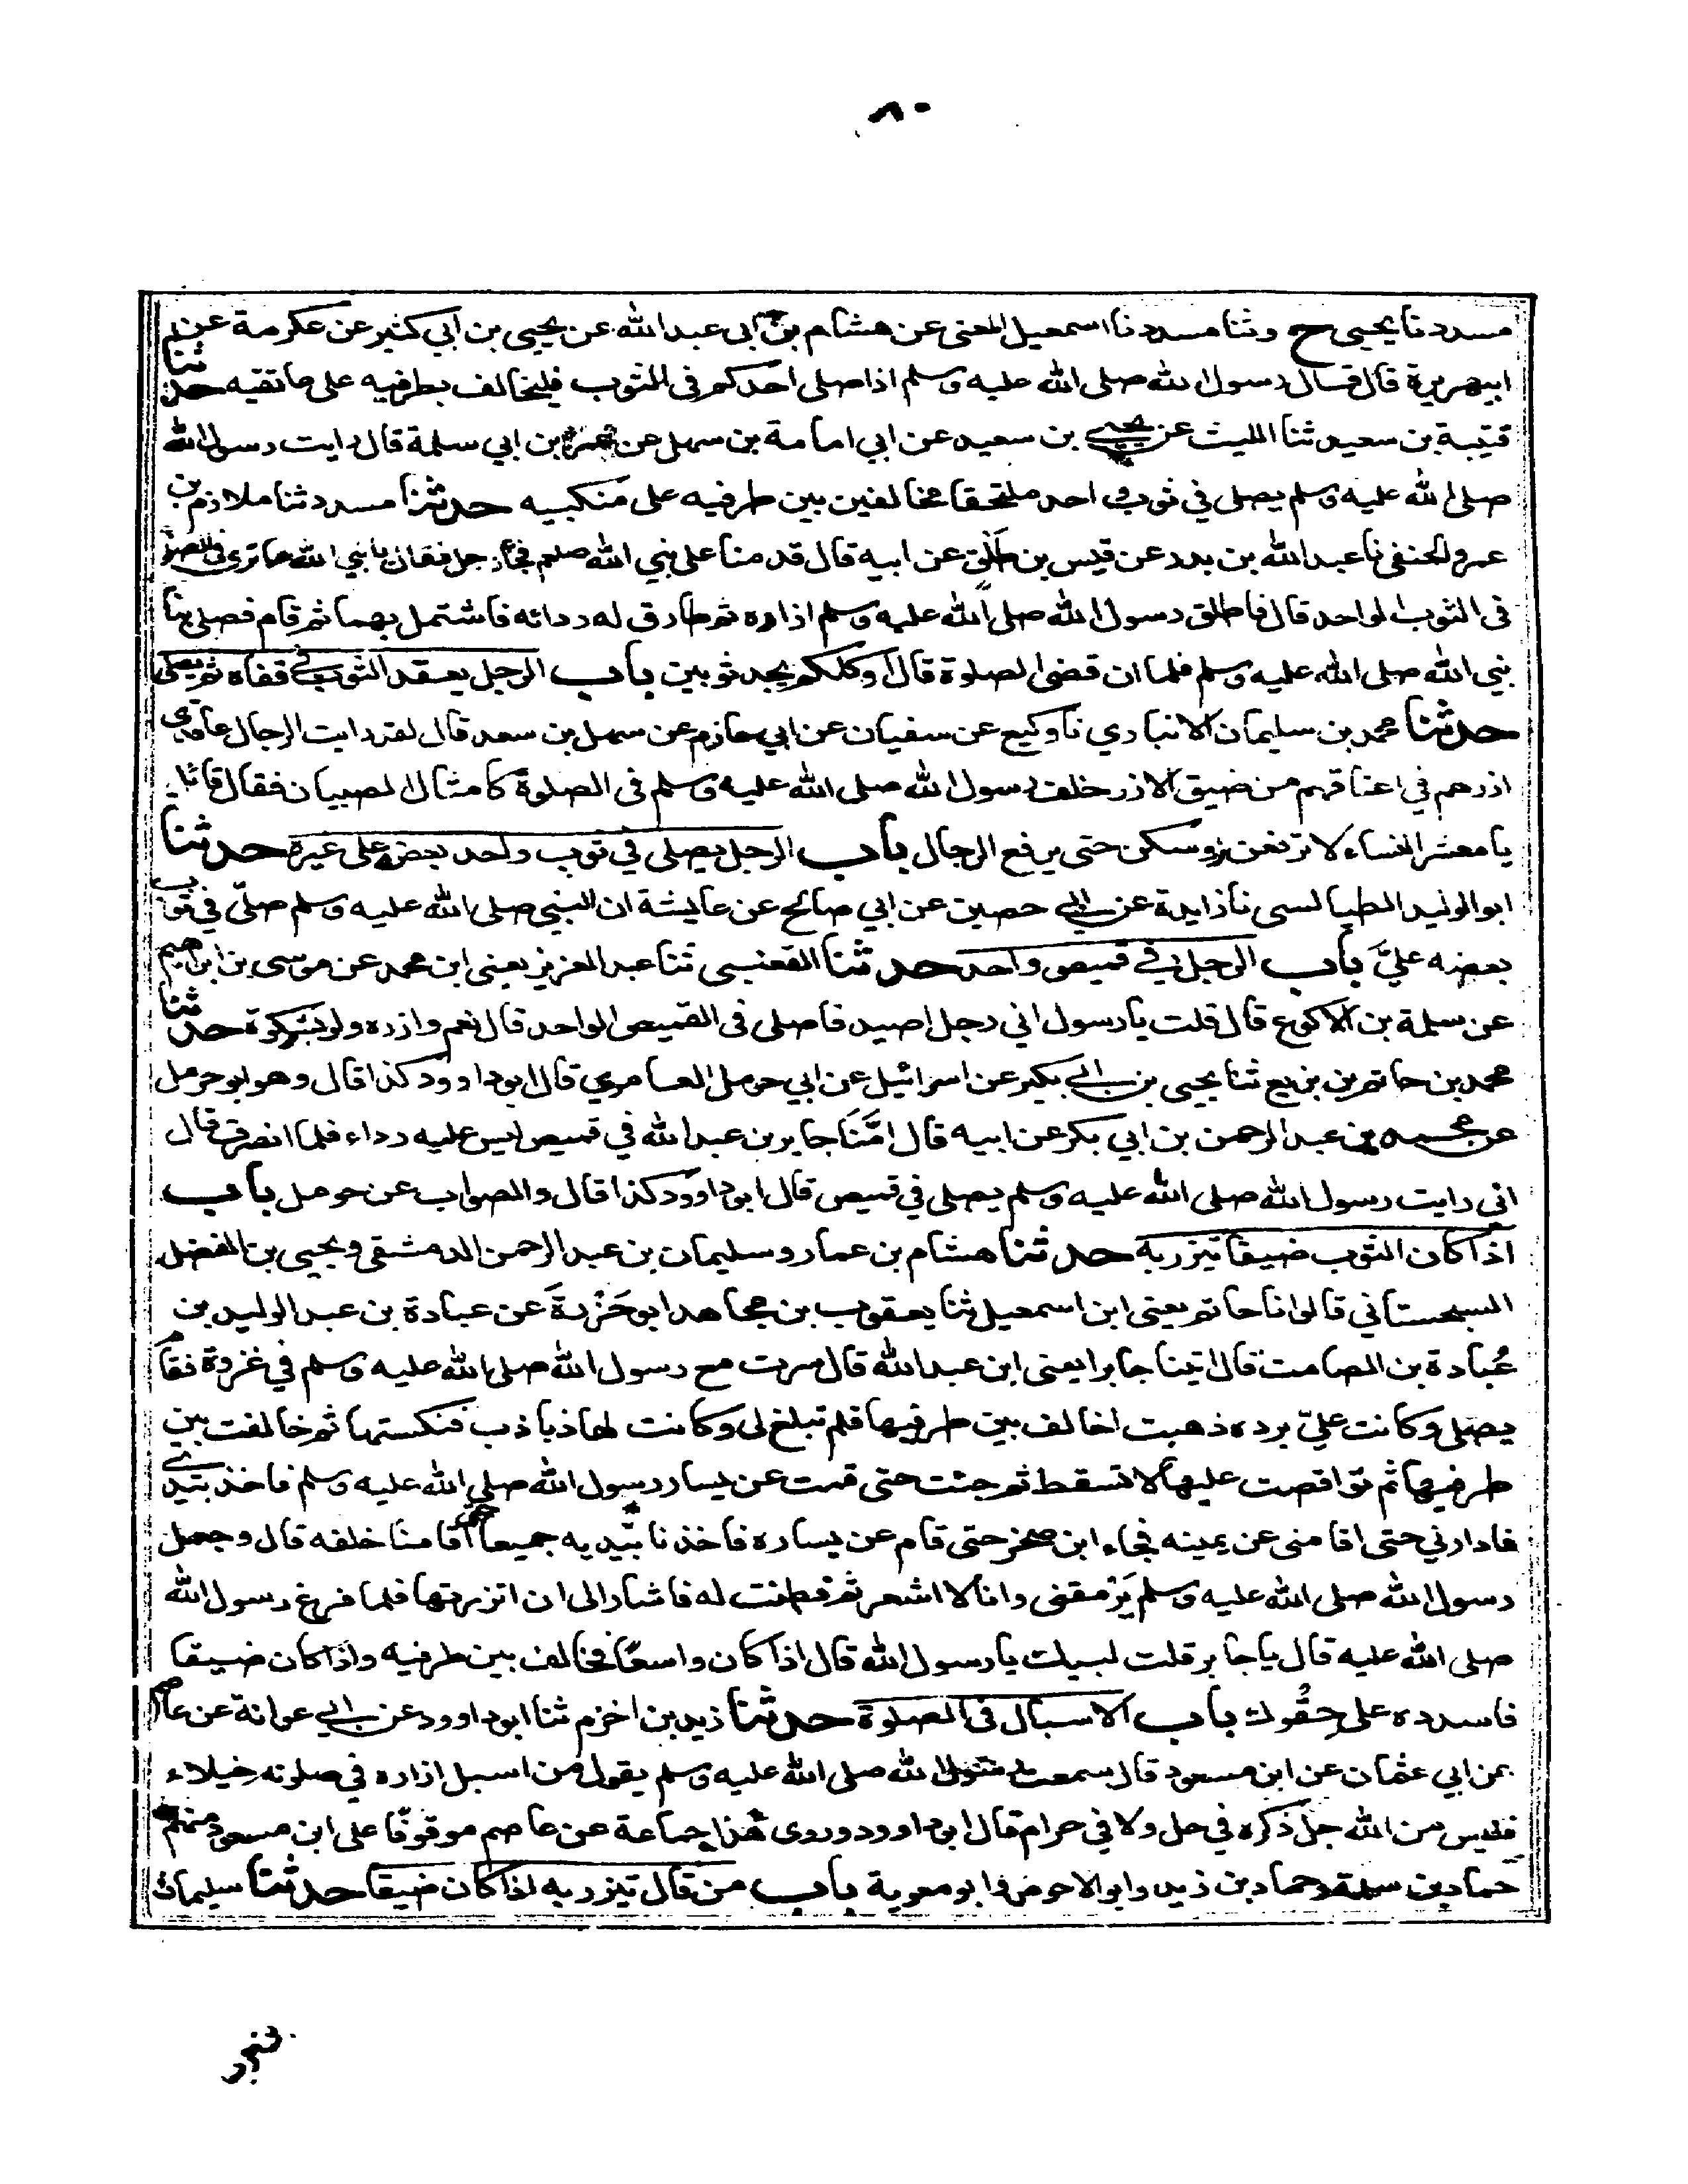 ٨٠
مسدد نا يحيى ح وثنا مسدد نا اسمعيل المعنى عن هشام بن ابى عبد الله عن يحيى بن ابي كثير عن عكرمة عن
ابيهريرة قال قال رسول الله صلى الله عليه وسلم اذا صلى احدكم فى الثوب فليخالف بطرفيه على عاتقيه حدثنا
قتيبة بن سعيد ثنا الليث عن يحيى بن سعيد عن ابي امامة بن سهل عن عمرو بن ابي سلمة قال رايت رسول الله
صلى الله عليه وسلم يصلى في ثوب واحد ملتحقا مخالفين بين طرفيه على منكبيه حدثنا مسدد ثنا ملازم بن
عمرو الحنفى نا عبد الله بن بدر عن قيس بن طلق عن ابيه قال قدمنا على نبي الله صلعم فجاء رجل فقال يا نبي الله ما ترى فى الصلوة
فى الثوب الواحد قال فاطلق رسول الله صلى الله عليه وسلم ازاره ثم طارق له ردائه فاشتمل بهما ثم قام فصلى بنا
نبي الله صلى الله عليه وسلم فلما ان قضى الصلوة قال اوكلكم يجد ثوبين باب الرجل يعقد الثوب في قفاه ثم يصلى
حدثنا محمد بن سليمان الانباري نا وكيع عن سفيان عن ابي حازم عن سهل بن سعد قال لقد رايت الرجال عاقدي
ازرهم في اعناقهم من ضيق الازر خلف رسول الله صلى الله عليه وسلم فى الصلوة كامثال الصبيان فقال قائل
يا معشر النساء لا ترفعن رؤسكن حتى يرفع الرجال باب الرجل يصلى في ثوب واحد بعضه على غيره حدثنا
ابو الوليد الطيالسى نا زايدة عن ابي حصين عن ابي صالح عن عايشة ان النبي صلى الله عليه وسلم صلّى في ثوب
بعضه عليّ باب الرجل في قميص واحد حدثنا القعنبي ثنا عبد العزيز يعنى ابن محمد عن موسى بن ابراهيم
عن سلمة بن الاكوع قال قلت يا رسول اني رجل اصيد فاصلى فى القميص الواحد قال نعم وازره ولو بشوكة حدثنا
محمد بن حاتم بن بزيع ثنا يحيى بن ابي بكير عن اسرائيل عن ابي حومل العامري قال ابو داوود كذا قال وهو ابو حرمل
عن محمد بن عبد الرحمن بن ابي بكر عن ابيه قال امّنا جابر بن عبد الله في قميص ليس عليه رداء فلما انصرف قال
انى رايت رسول الله صلى الله عليه وسلم يصلى في قميص قال ابو داوود كذا قال والصواب عن حومل باب
اذا كان الثوب ضيقا يتزر به حدثنا هشام بن عمار وسليمان بن عبد الرحمن الدمشقى ويحيى بن الفضل
السجستاني قالوا نا حاتم يعنى ابن اسمعيل ثنا يعقوب بن مجاهد ابو حَزْرة عن عبادة بن عبد الوليد بن
عُبادة بن الصامت قال اتينا جابرا يعنى ابن عبد الله قال سرت مع رسول الله صلى الله عليه وسلم في غزوة فقام
يصلى وكانت عليّ برده ذهبت اخالف بين طرفيها فلم تبلغ لى وكانت لها ذباذب فنكستها ثم خالفت بين
طرفيها ثم تواقصت عليها لا تسقط ثم جئت حتى قمت عن يسار رسول الله صلى الله عليه وسلم فاخذ بيدي
فادارني حتى اقامنى عن يمينه فجاء ابن صخر حتى قام عن يساره فاخذنا بيديه جميعا حتى اقامنا خلفه قال وجعل
رسول الله صلى الله عليه وسلم يَرْمقنى وانا لا اشعر ثم فطنت له فاشار الى ان اتزر بها فلما فرغ رسول الله
صلى الله عليه قال يا جابر قلت لبيك يا رسول الله قال اذا كان واسعًا فخالف بين طرفيه واذا كان ضيقا
فاسدده على حِقُوك باب الاسبال فى الصلوة حدثنا زيد بن اخزم ثنا ابو داوود عن ابي عوانة عن عاصم
عن ابي عثمان عن ابن مسعود قال سمعت رسول الله صلى الله عليه وسلم يقول من اسبل ازاره في صلوته خيلاء
فليس من الله جلّ ذكره في حل ولا في حرام قال ابو داوود وروى هذا جماعة عن عاصم موقوفًا على ابن مسعود منهم
حماد بن سلمة وحماد بن زيد وابو الاحوص وابو معوية باب من قال يتزر به اذا كان ضيقا حدثنا سليمان